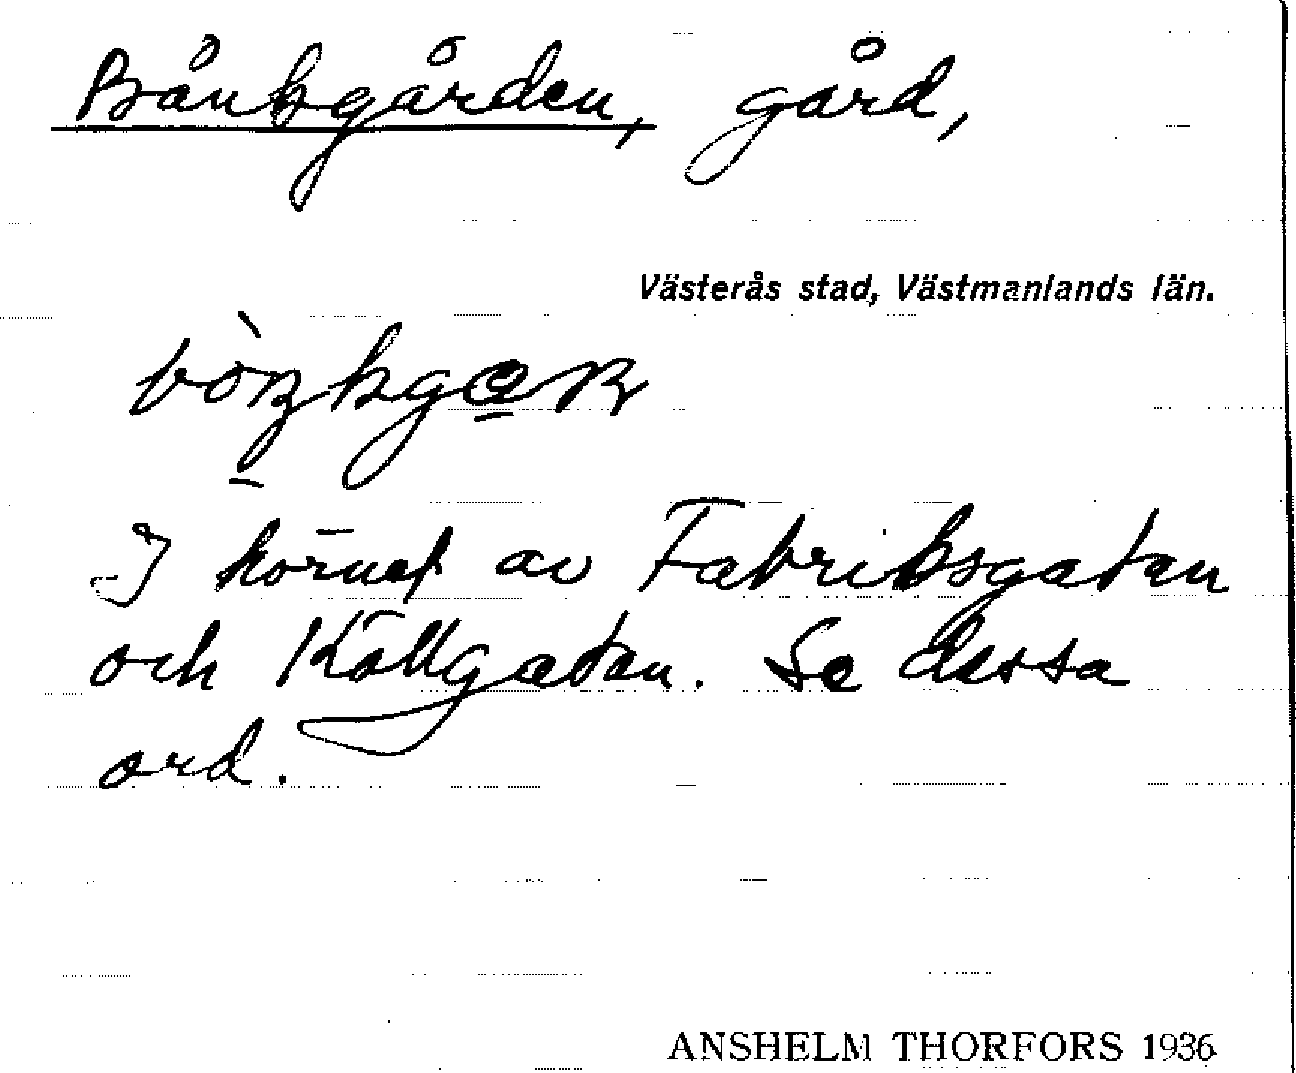 Bånkgården, gård,
Västerås stad, Västmanlands län.
I hörnet av Fabriksgatan
och Källgatan. Se dessa
ord.
ANSHELM THORFORS 1936